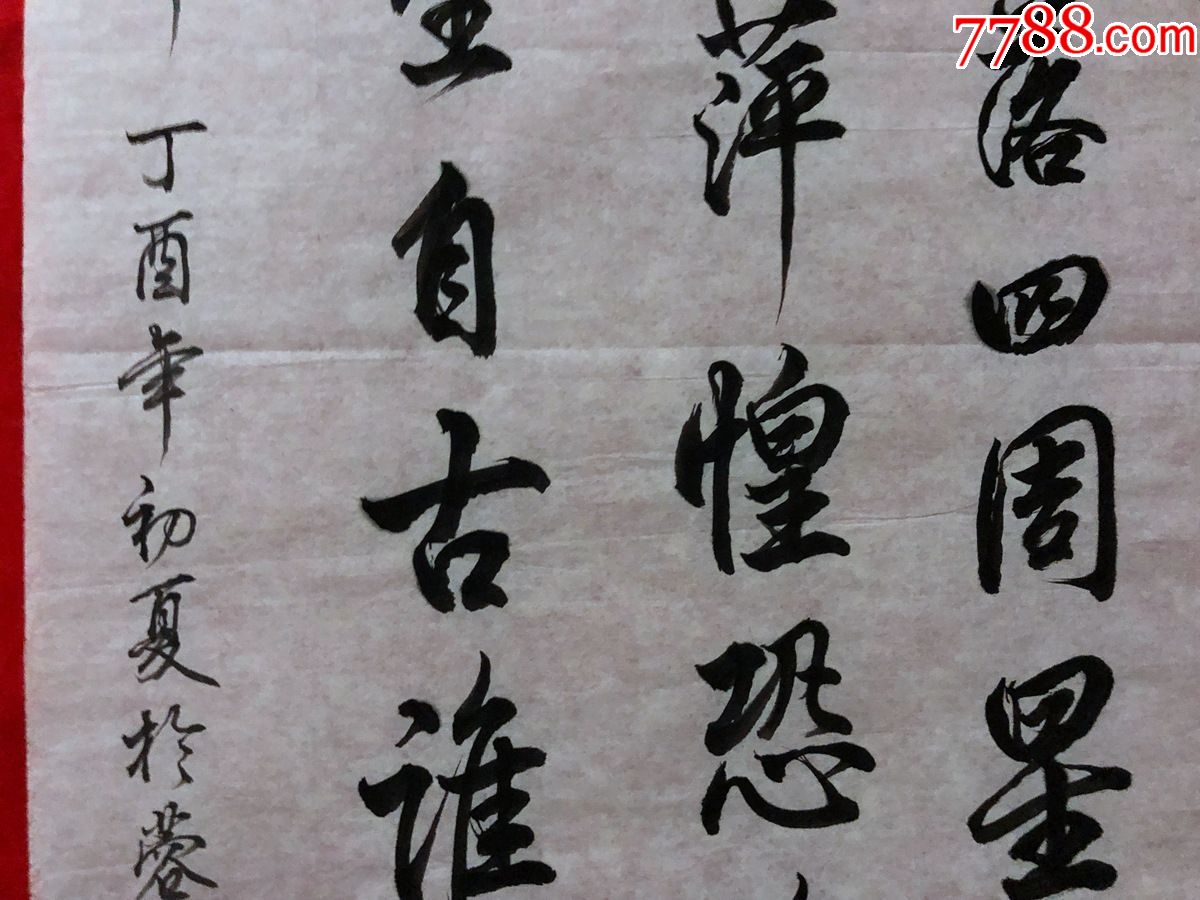 7788.com
落四周星
萍惶恐
生自古誰
丁酉年初夏於蓉